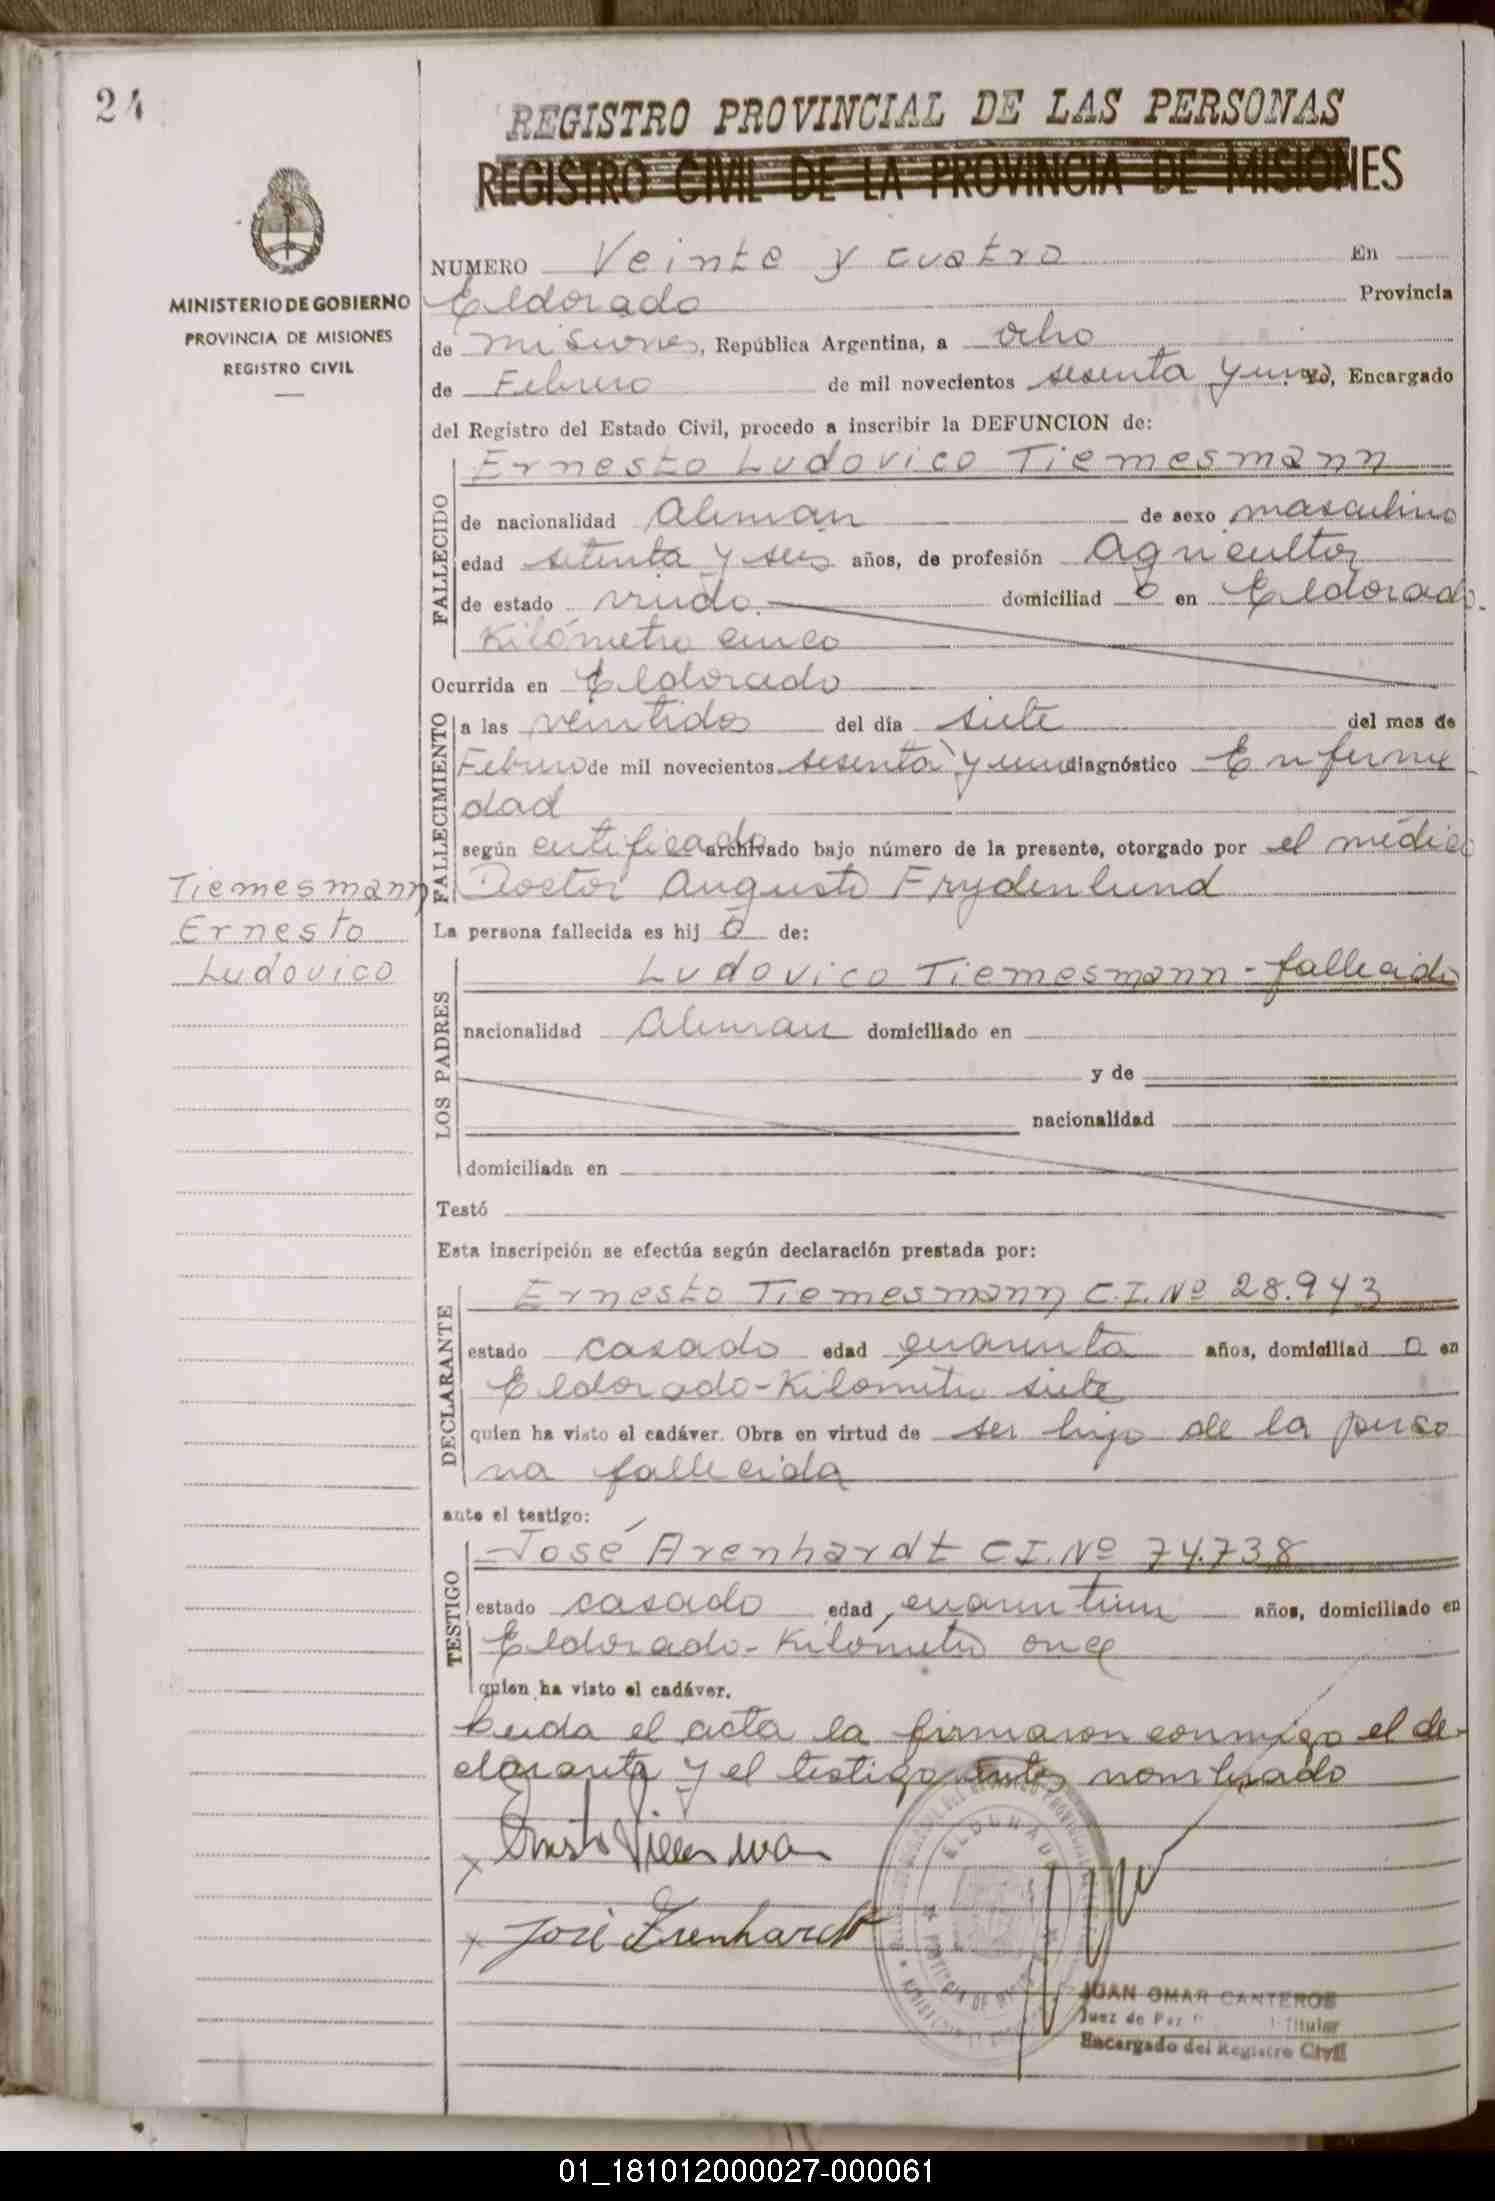 24
REGISTRO PROVINCIAL DE LAS PERSONAS
REGISTRO CIVIL DE LA PROVINCIA DE MISIONES
MINISTERIO DE GOBIERNO
PROVINCIA DE MISIONES
REGISTRO CIVIL
NUMERO Veinte y cuatro En
Eldorado Provincia
de Misiones, República Argentina, a ocho
de Febrero de mil novecientos sesenta y uno, Yo, Encargado
del Registro del Estado Civil, procedo a inscribir la DEFUNCION de:
FALLECIDO
Ernesto Ludovico Tiemesmann
de nacionalidad Aleman de sexo masculino
edad setenta y seis años, de profesión Agricultor
de estado viudo. domiciliad o en Eldorado-
Kilómetro cinco
Ocurrida en Eldorado
FALLECIMIENTO
a las veintidos del día siete del mes de
Febrero de mil novecientos sesenta y uno diagnóstico Enferme
dad
según certificado archivado bajo número de la presente, otorgado por el médico
Doctor Augusto Frydenlund
Tiemesmann
Ernesto
Ludovico
La persona fallecida es hij o de:
LOS PADRES
Ludovico Tiemesmann - fallecido
nacionalidad Aleman domiciliado en
y de
nacionalidad
domiciliada en
Testó
Esta inscripción se efectúa según declaración prestada por:
DECLARANTE
Ernesto Tiemesmann C.I. Nº 28.943
estado casado edad cuarenta años, domiciliad o en
Eldorado-Kilómetro siete
quien ha visto el cadáver. Obra en virtud de ser hijo de la perso
na fallecida
ante el testigo:
TESTIGO
José Arenhardt C.I. Nº 74.738
estado casado edad años, domiciliado en
Eldorado-Kilómetro once
quien ha visto el cadáver.
Leida el acta la firmaron conmigo el de-
clarante y el testigo antes nombrado
x Ernesto
x José Arenhardt
ELDORADO
JUAN OMAR CANTEROS
Juez de Paz Titular
Encargado del Registro Civil
01_181012000027-000061